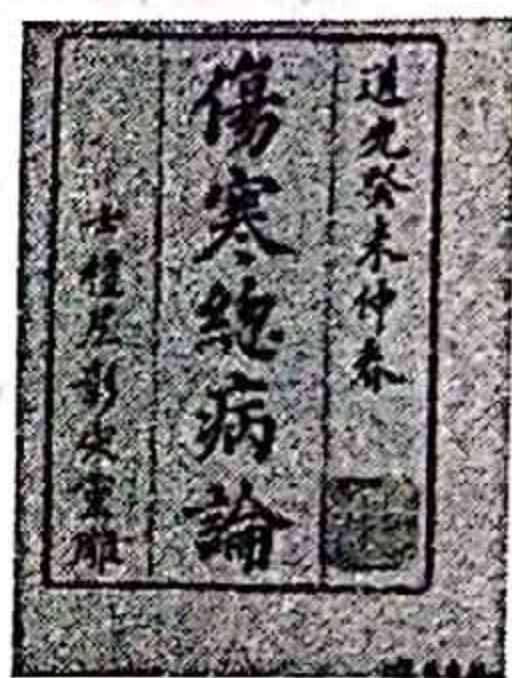 道光癸未仲春
傷寒總病論
士禮居影宋重雕